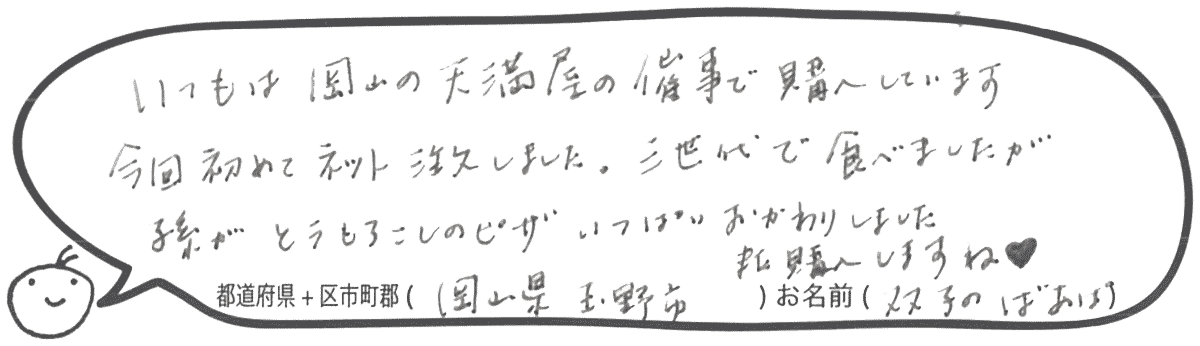 いつもは岡山の天満屋の催事で購入しています
今回初めてネット注文しました。三世代で食べましたが
孫がとうもろこしのピザいっぱいおかわりしました
また購入しますね♥
都道府県+区市町郡(岡山県 玉野市)お名前(双子のばあば)